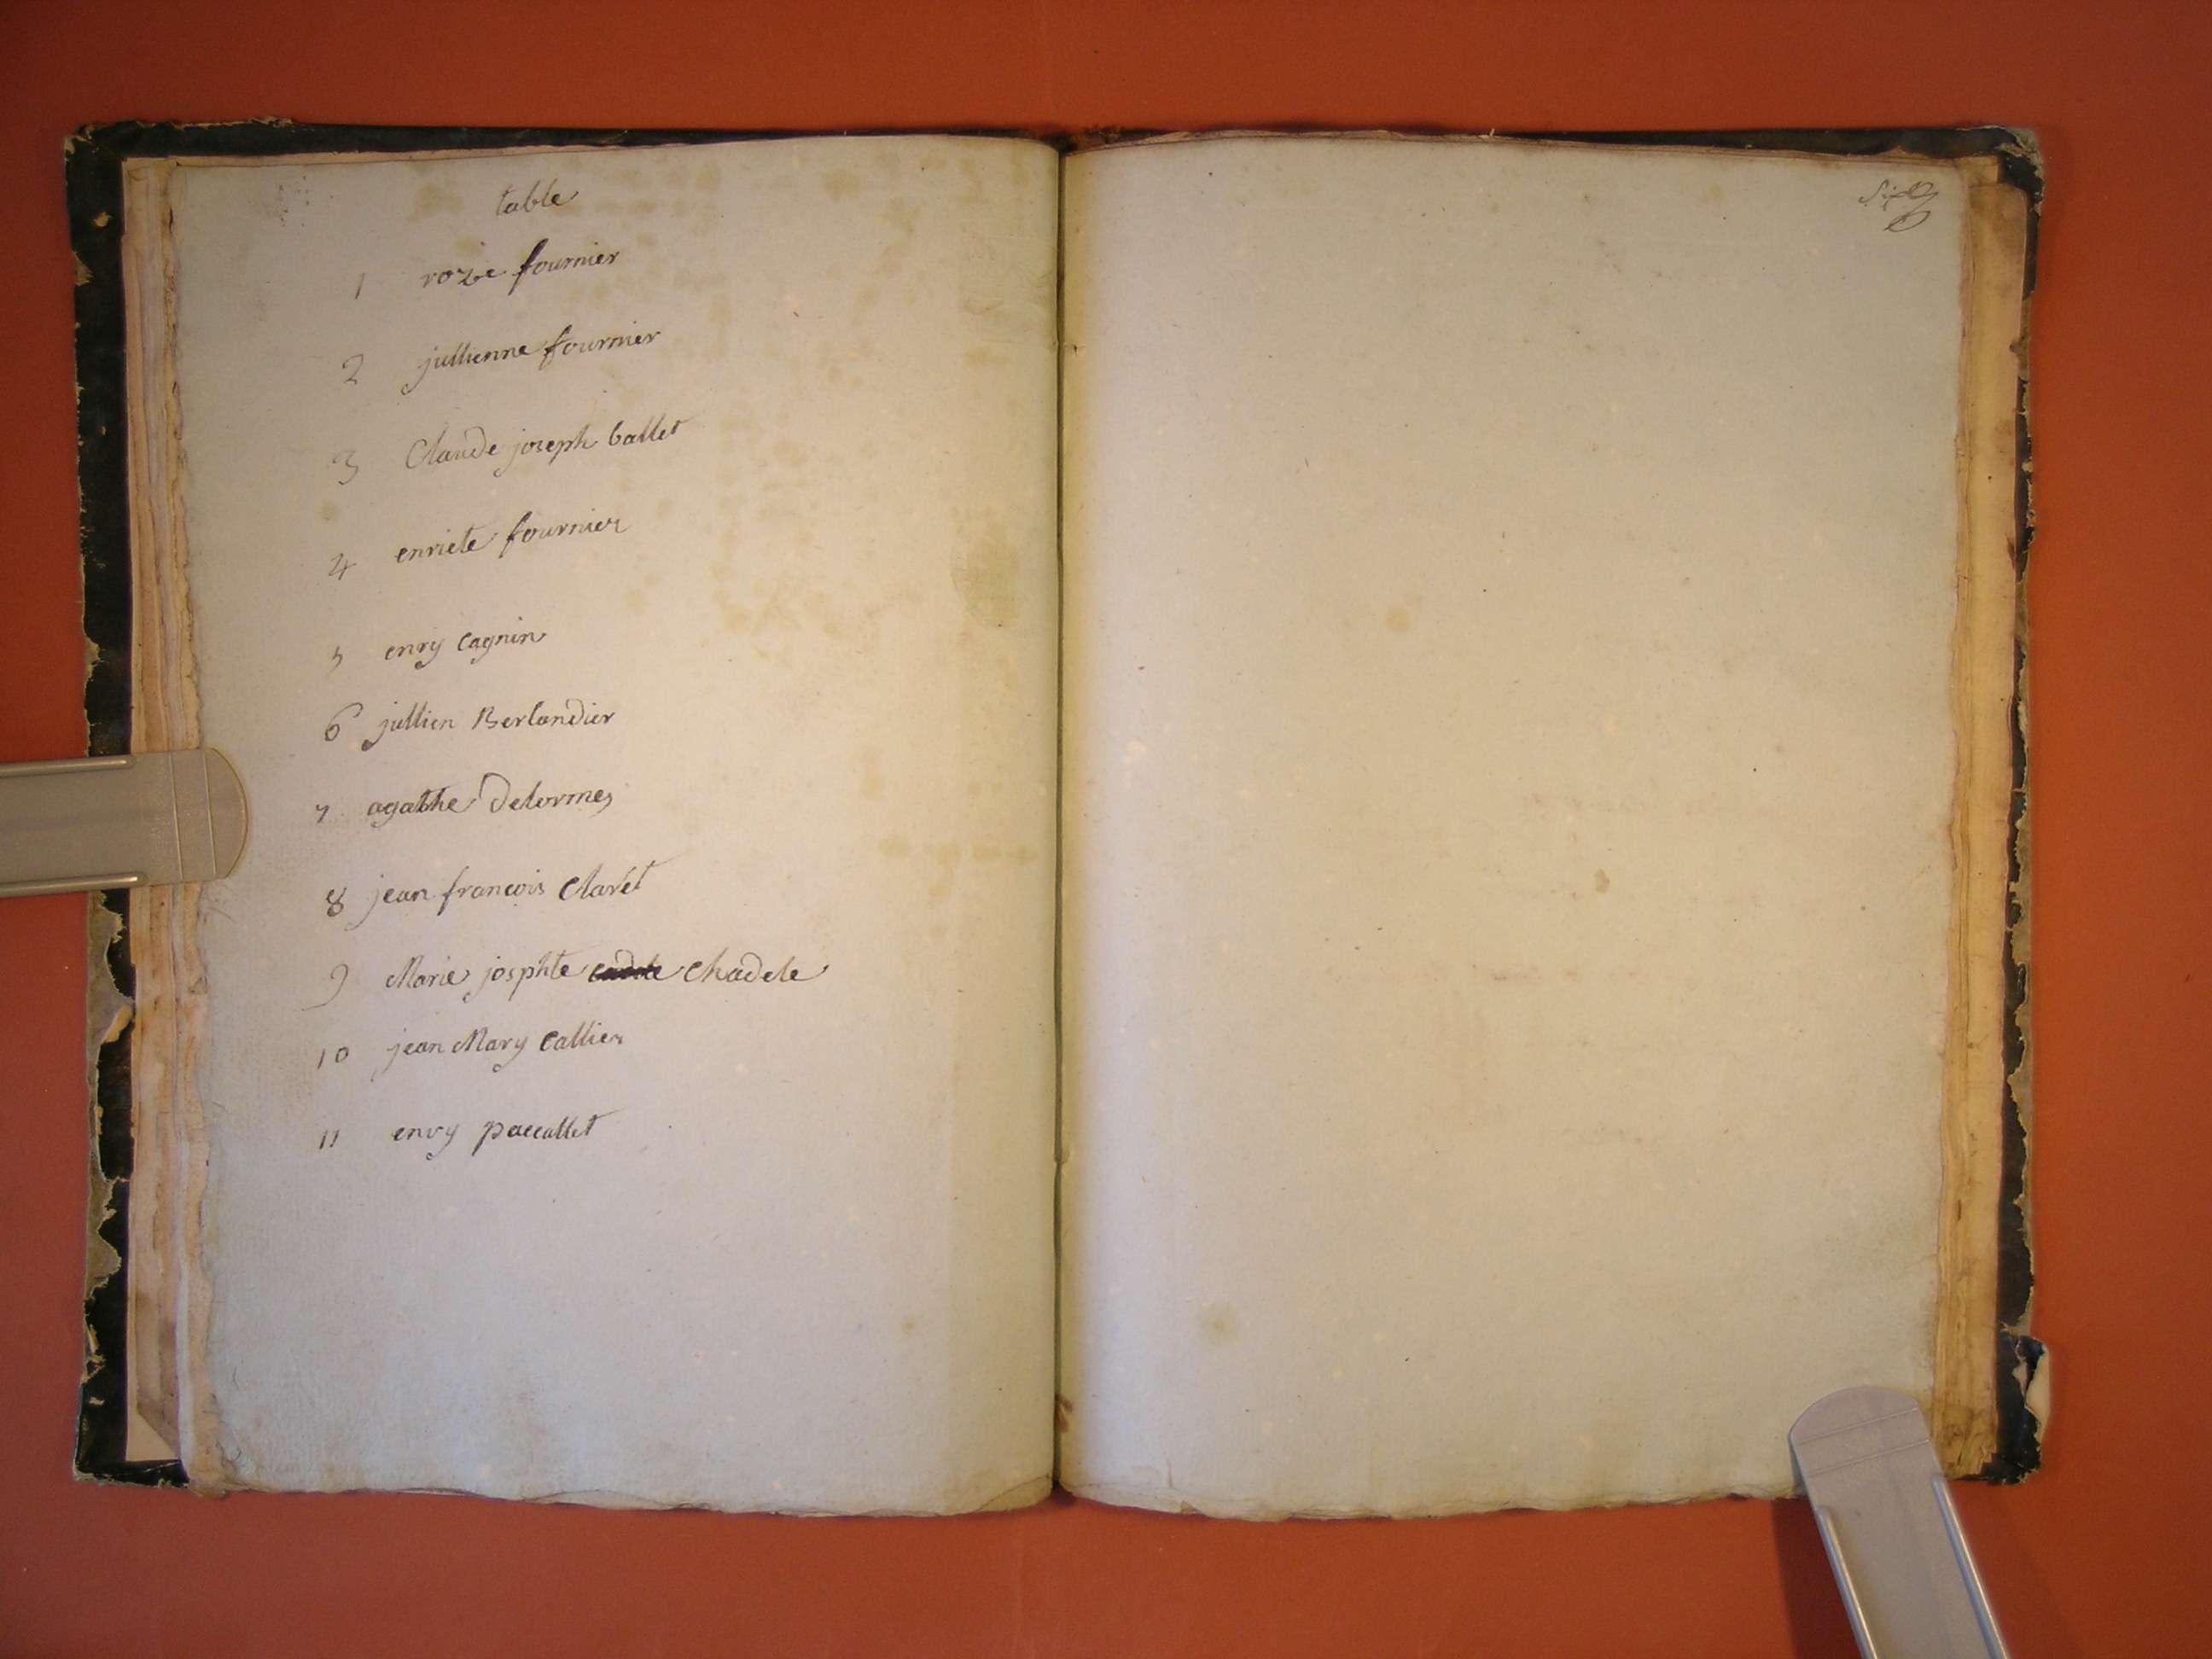 table
1 roze fournier
2 jullienne fournier
3 Claude joseph ballet
4 enriete fournier
5 enry Cagnin
6 jullien Berlandier
7 agathe Delormes
8 jean francois Clarét
9 Marie josphte cadele chadele
10 jean Mary Callier
11 enry paccallet